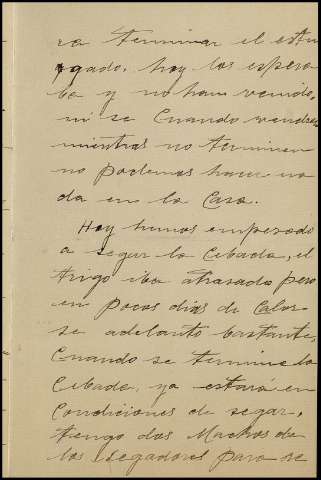 ra terminar el estu
gado, hoy los espera
ba y no han venido,
ni se Cuando vendran
mientras no terminen
no podemos hacer na
da en la Casa.
Hoy hemos empezado
a segar la Cebada, el
trigo iba atrasado pero
en pocos dias de Calor
se adelanto bastante,
Cuando se termine la
Cebada, ya estará en
Condiciones de segar,
tengo dos Machos de
los segadores para se